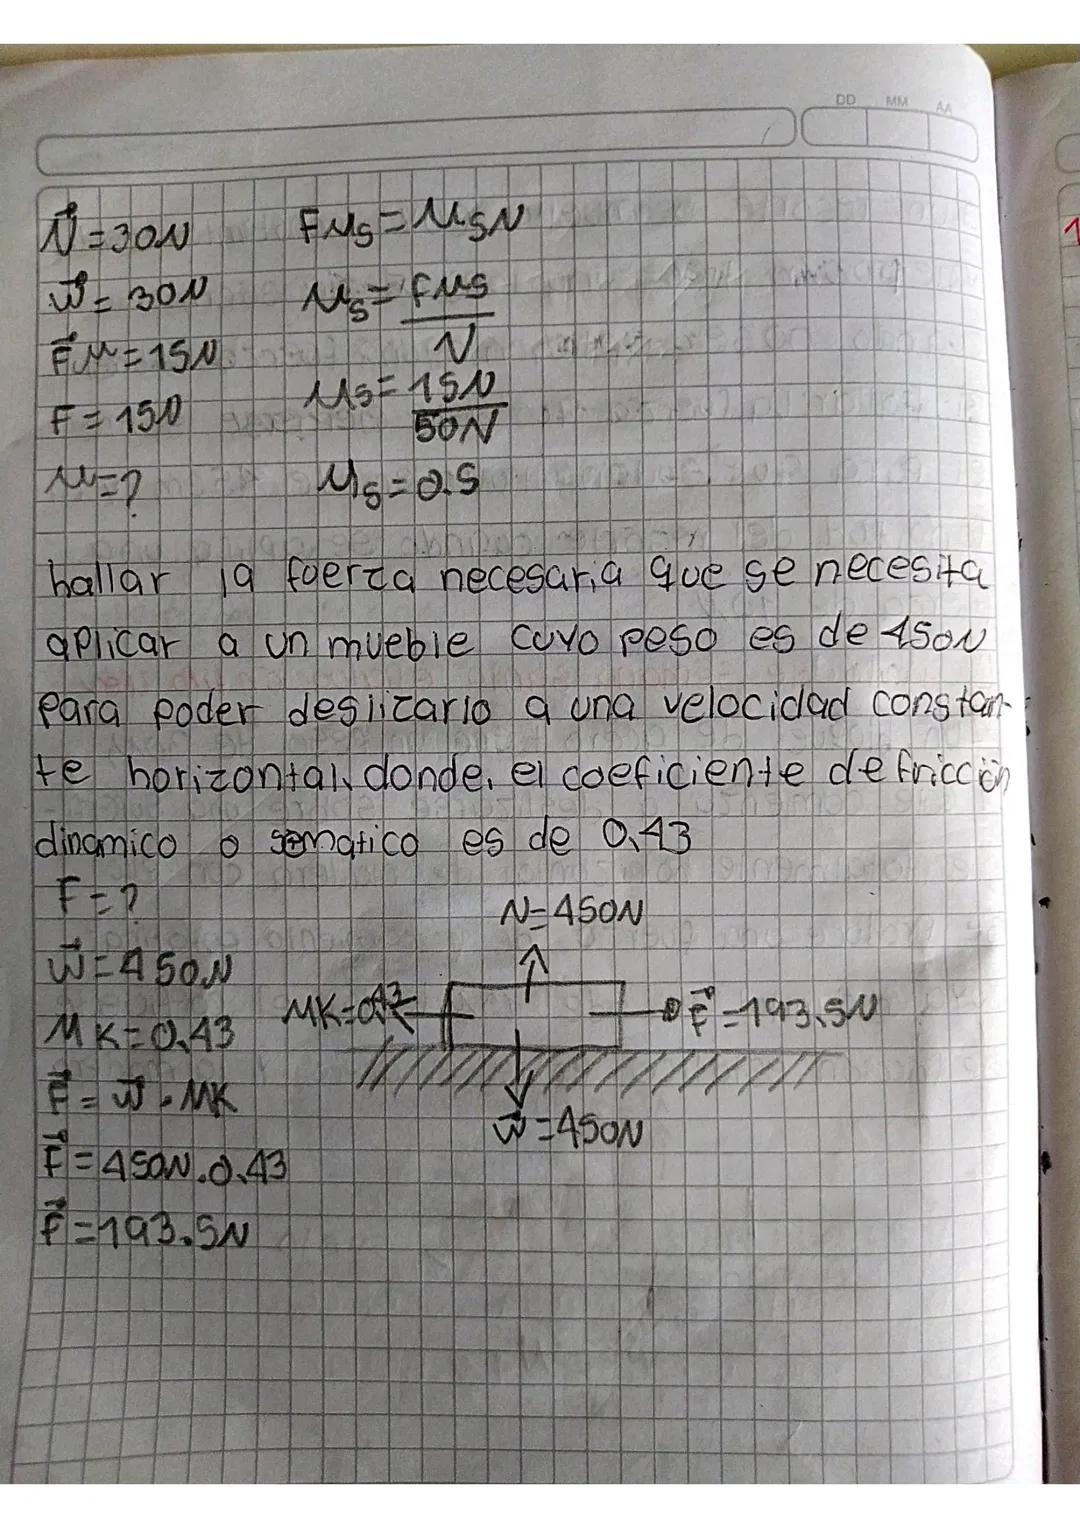 DD MM AA
N⃗=30N FMs=MsN
w⃗=30N Ms=fMs/N
F⃗M=15N
F=15N Ms=15N/50N
M=? Ms=0.5
hallar la fuerza necesaria que se necesita
aplicar a un mueble cuyo peso es de 450N
para poder deslizarlo a una velocidad constan-
te horizontal, donde, el coeficiente de fricción
dinamico o sematico es de 0,43
F=?
N=450N
w⃗=450N
MK=0,43
MK=0,43
F⃗=193,5N
F⃗=w⃗.MK
w⃗=450N
F⃗=450N.0,43
F⃗=193.5N